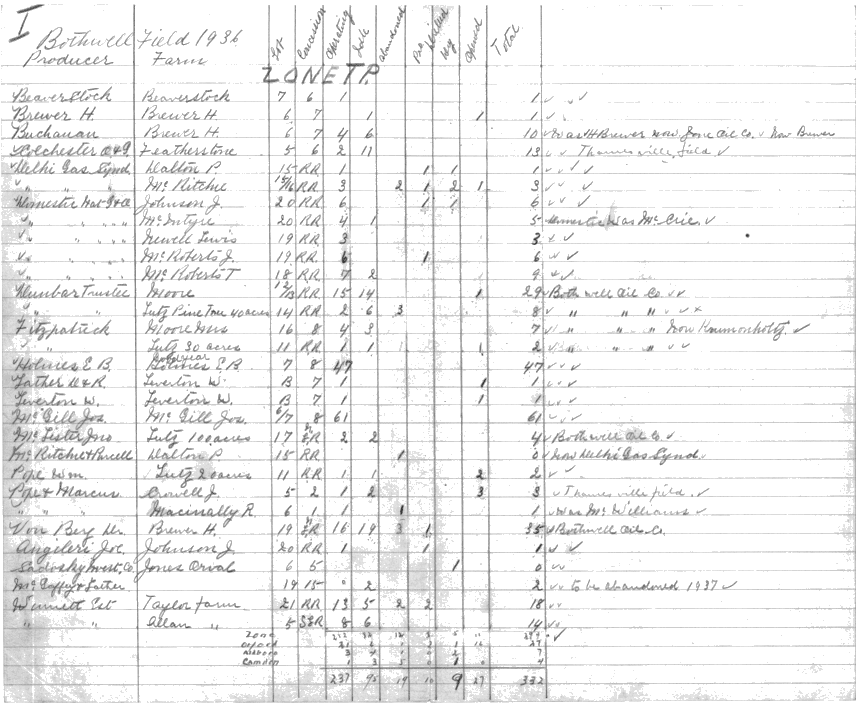 I
Bothwell Field 1936
Producer Farm Lot Concession Operating Idle abandoned Dry opened Total
ZONE TP.
Beaverstock Beaverstock 7 6 1 1
Brewer H. Brewer H. 6 7 1 1 1
Buchanan Brewer H. 6 7 4 6 10 Was H Brewer now Oil Co. Now Brewer
Colchester O & G. Featherstone 5 6 2 11 13 Thamesville field
Delhi Gas Synd. Dalton P. 15 RR 1 1 1 1
" " " McRitchie 15/16 RR 3 2 1 2 1 3
Domestic Nat G & O Johnson J. 20 RR 6 1 1 6
" " " McIntyre 20 RR 4 1 5 Domestic was McCrie
" " " Newell Lewis 19 RR 3 3
" " " McRoberts J. 19 RR 6 1 6
" " " McRoberts T 18 RR 7 2 9
Dunbar Trustee Moore 12/13 RR 15 14 1 29 Bothwell Oil Co.
" " Lutz Pine Tree 40 acres 14 RR 2 6 3 8 " " "
Fitzpatrick Moore Mrs 16 8 4 3 7 " " " Now
" " Lutz 30 acres 11 RR 1 1 1 1 2 " " "
Holmes E B. Holmes E. B. 7 8 47 47
Lather D & R. Leverton W. B 7 1 1 1
Leverton W. Leverton W. B 7 1 1 1
McGill Jos. McGill Jos. 6/7 8 61 61
McLister Jno Lutz 100 acres 17 2 2 4 Bothwell Oil Co
McRitchie & Purcell Dalton P. 15 RR 1 0 Now Delhi Gas Synd.
Pope Wm. Lutz 20 acres 11 RR 1 1 2 2
Pope & Marcus Crowell J. 5 2 1 2 3 3 Thamesville field.
" " Macinally R. 6 1 1 1 1 Was McWilliams
Von Berg Dr. Brewer H. 19 16 19 3 1 35 Bothwell Oil Co.
Angileri Joe Johnson J. 20 RR 1 1 1
Sadosky Invest. Co. Jones Orval 6 5 1 0
McCaffey & Lather 19 15 0 2 2 to be abandoned 1937
Winnett Est Taylor farm 21 RR 13 5 2 2 18
" " Allan " 5 8 6 14
Zone 212
Orford 27
Camden 1 3 5 0 1 0 4
237 95 19 10 9 27 332